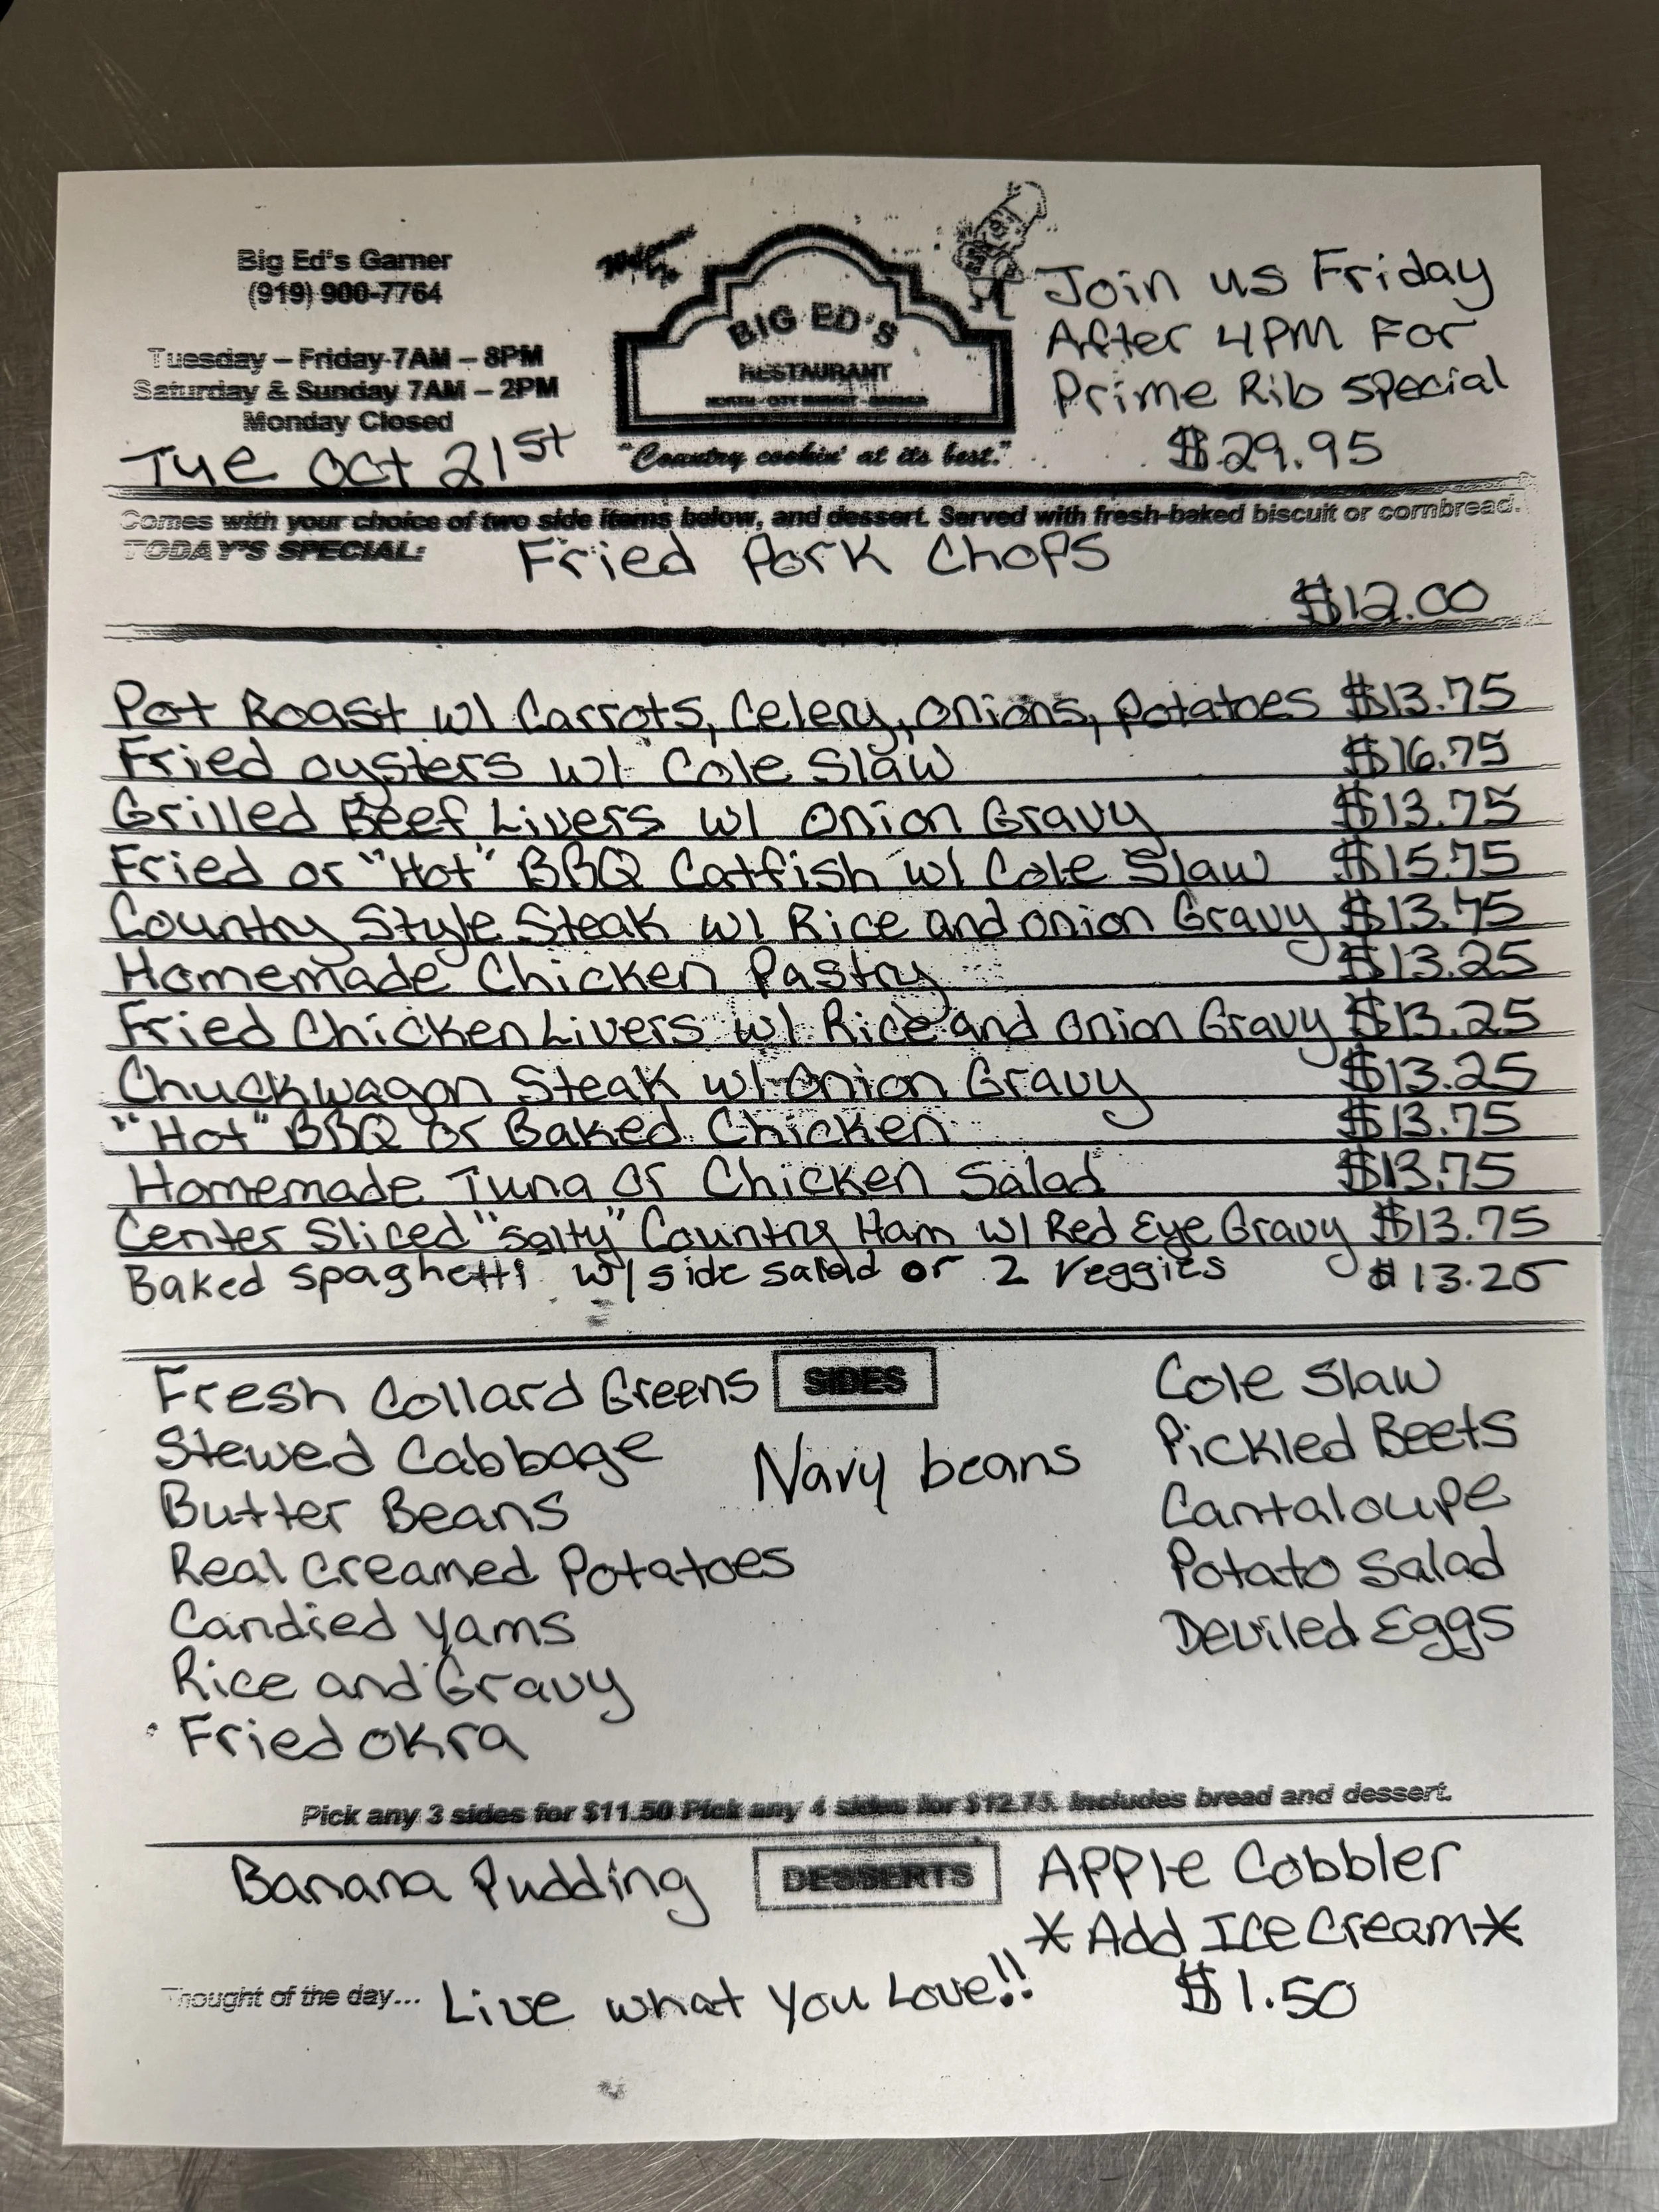 Big Ed's Garner
(919) 900-7764
Tuesday – Friday 7AM – 8PM
Saturday & Sunday 7AM – 2PM
Monday Closed
Tue Oct 21st
BIG ED'S
RESTAURANT
"Country cookin' at its best."
Join us Friday
After 4PM For
Prime Rib Special
$29.95
Comes with your choice of two side items below, and dessert. Served with fresh-baked biscuit or cornbread.
TODAY'S SPECIAL: Fried Pork Chops
$12.00
Pot Roast w/ Carrots, Celery, Onions, Potatoes $13.75
Fried Oysters w/ Cole Slaw $16.75
Grilled Beef Livers w/ Onion Gravy $13.75
Fried or "Hot" BBQ Catfish w/ Cole Slaw $15.75
Country Style Steak w/ Rice and Onion Gravy $13.75
Homemade Chicken Pastry $13.25
Fried Chicken Livers w/ Rice and Onion Gravy $13.25
Chuckwagon Steak w/ Onion Gravy $13.25
"Hot" BBQ or Baked Chicken $13.75
Homemade Tuna or Chicken Salad $13.75
Center Sliced "Salty" Country Ham w/ Red Eye Gravy $13.75
Baked spaghetti w/ side salad or 2 veggies $13.25
SIDES
Fresh Collard Greens
Stewed Cabbage
Butter Beans
Real Creamed Potatoes
Candied Yams
Rice and Gravy
Fried Okra
Navy beans
Cole Slaw
Pickled Beets
Cantaloupe
Potato Salad
Deviled Eggs
Pick any 3 sides for $11.50 Pick any 4 sides for $12.75. Includes bread and dessert.
DESSERTS
Banana Pudding
Apple Cobbler
*Add Ice Cream*
$1.50
Thought of the day... Live what you Love!!